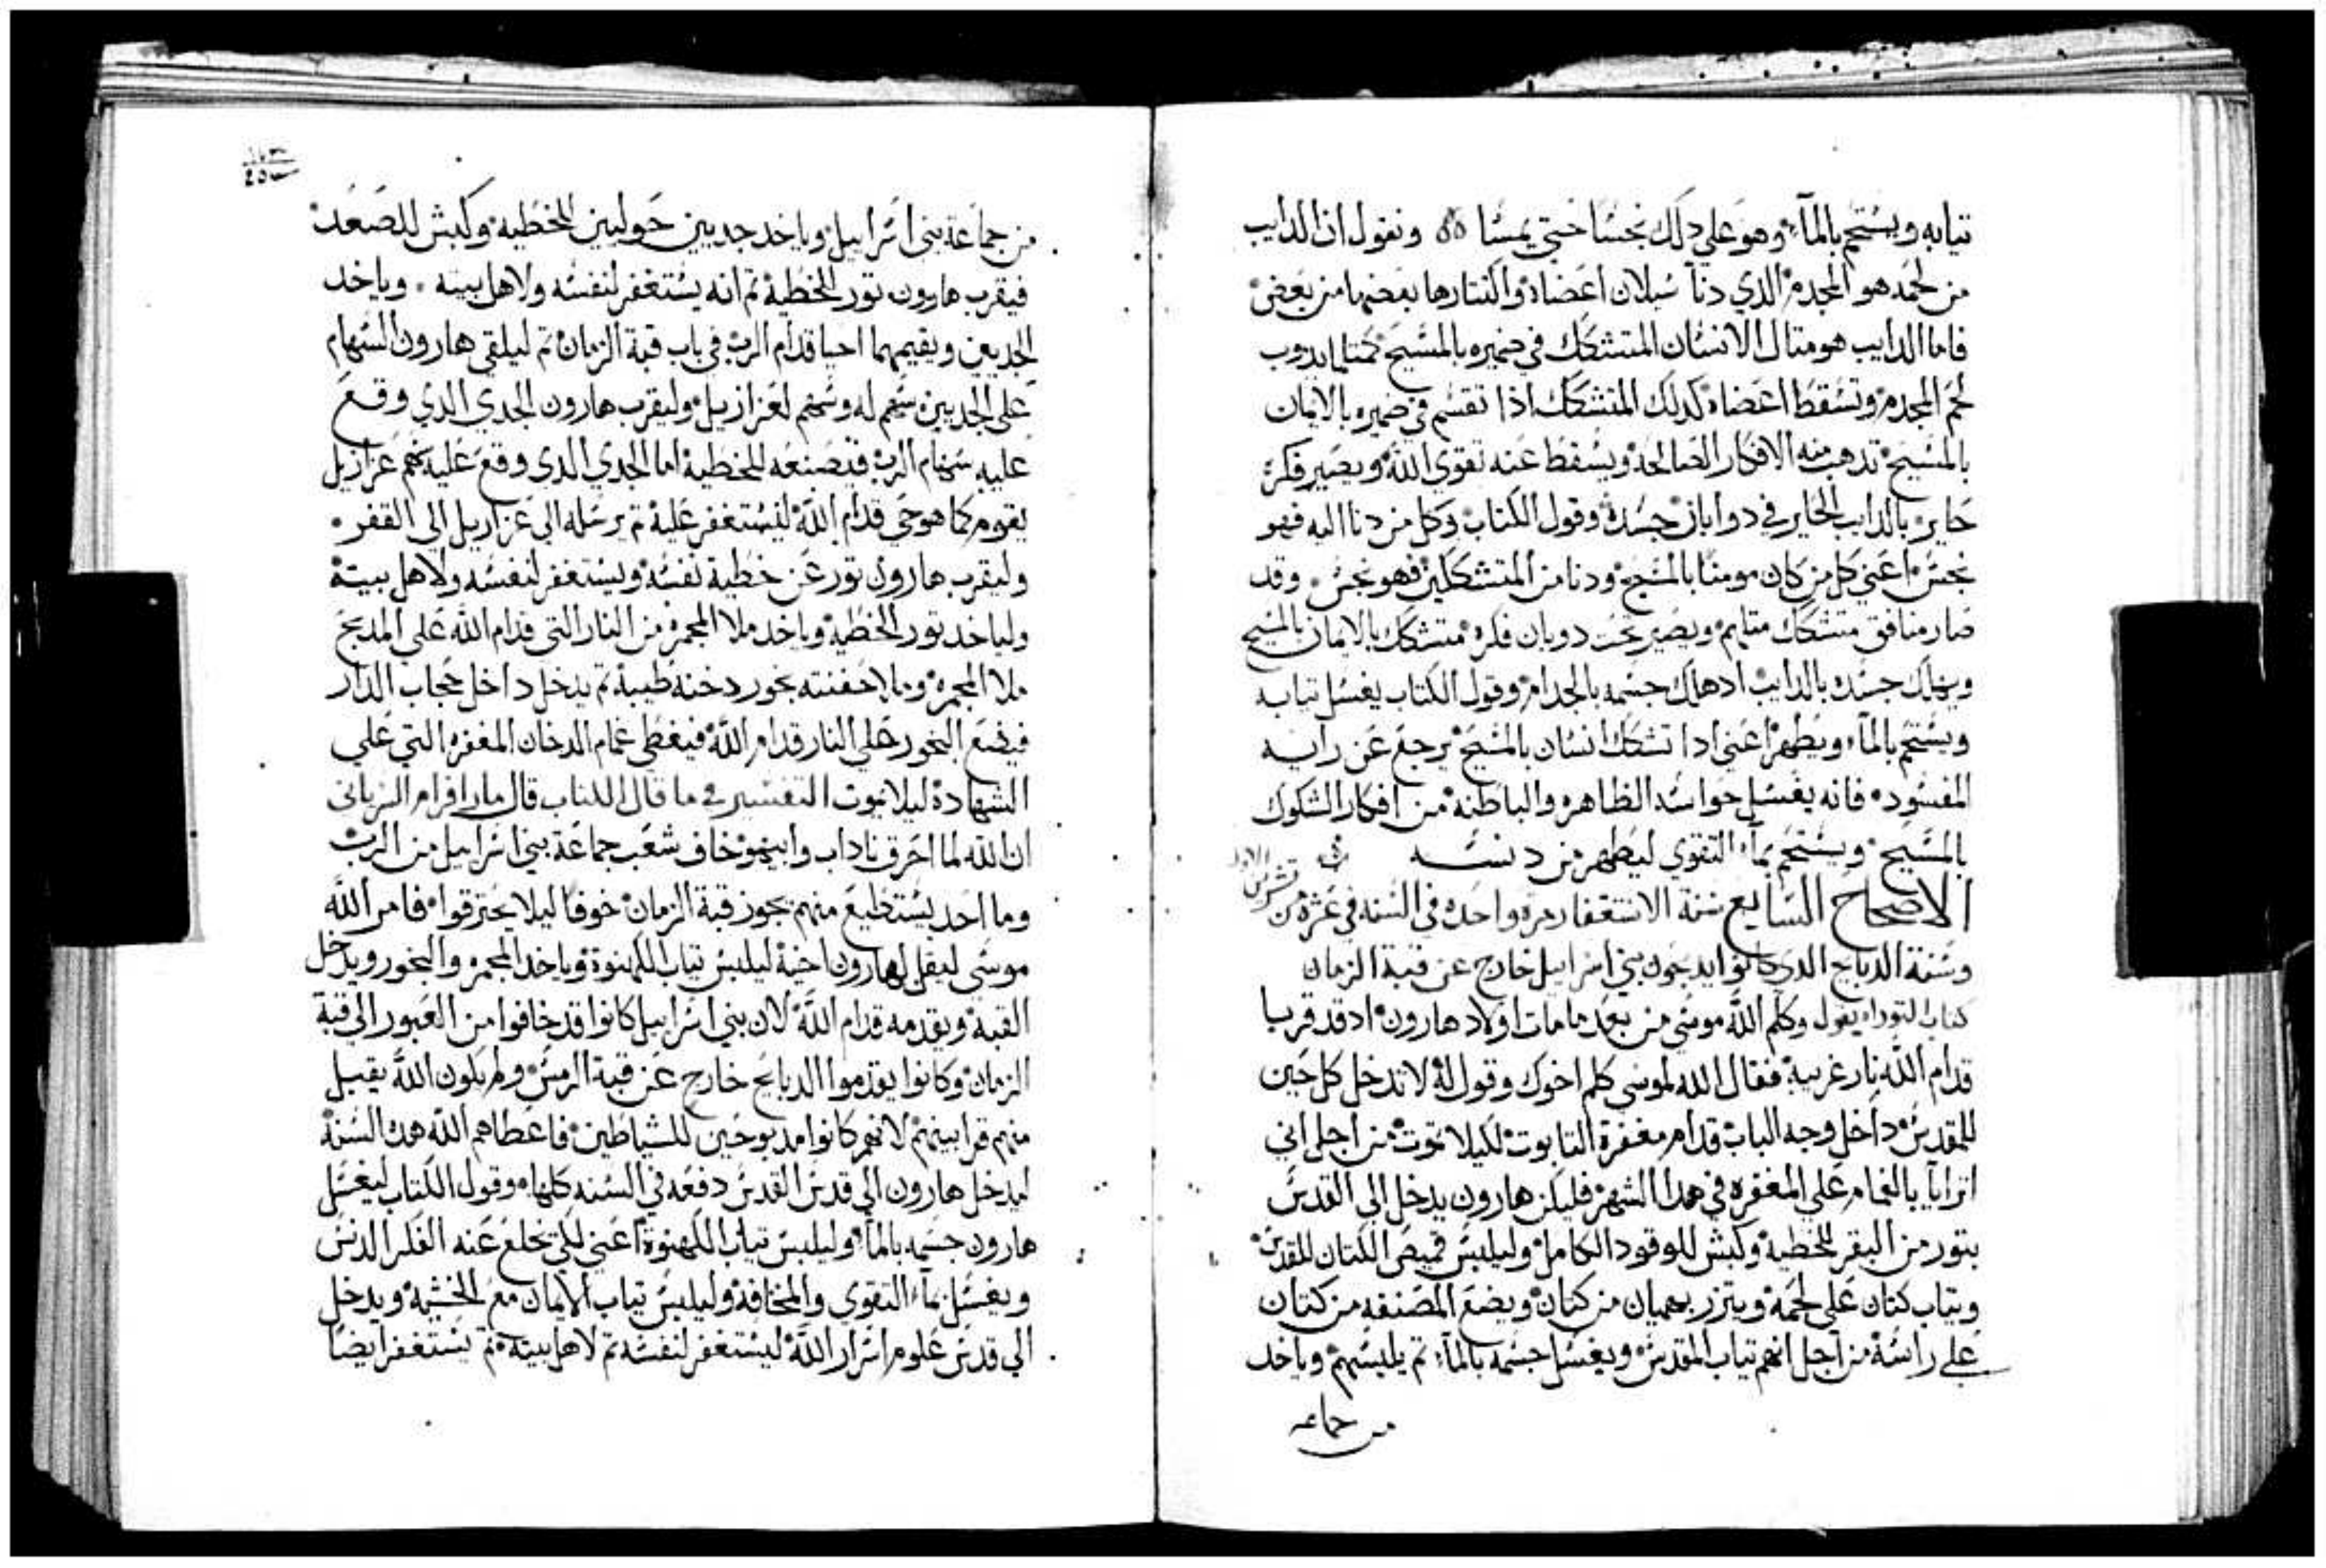 تيابه ويستحم بالمآء وهو على دلك نجسًا حتي يمسًا ٥٥ ونقول ان الدايب
من لحمه هو المجدم الذي دنآ سيلان اعضاه وانتتارها بعضها من بعض
فاما الدايب هو متال الانسان المتشكك في ضميره بالمسيح كمتل ما يدوب
لحم المجدم وتسقط اعضاه كدلك المتشكك اذا تقسم في ضميره بالايمان
بالمسيح تدهب منه الافكار الصالحه ويسقط عنه تقوي الله ويصير فكره
حاير بالدايب الحاير في دوابان جسده وقول الكتاب وكل من دنا اليه فهو
نجس اعني كل من كان مومنًا بالمسيح ودنا من المتشككين فهو نجس وقد
صار منافق متشكك متلهم ويصير تحت دوبان فكره متشكك بالايمان بالمسيح
ويهلك جسده بالدايب ادهلك جسمه بالجدام وقول الكتاب يغسل تيابه
ويستحم بالمآء ويطهر اعني ادا تشكك انسان بالمسيح يرجع عن رايه
المفسود فانه يغسل حواسه الظاهره والباطنه من افكار الشكوك
بالمسيح ويستحم بمآء التقوي ليطهر من دنسه
الاصحاح السابع سنة الاستغفار مره واحده في السنه في عشره من تشرين الاول
وسنة الدبايح الدي كانوا يدبحون بني اسراييل خارج عن قبة الزمان
كتاب التوراه يقول وكلم الله موسى من بعد ما مات اولاد هارون اد قد قربا
قدام الله نار غريبه فقال الله لموسى كلم اخوك وقول له لا تدخل كل حين
للمقدس داخل وجه الباب قدام مغفرة التابوت لكيلا تموت من اجل اني
اترايآ بالغمام علي المغفره في هدا الشهر فليكن هارون يدخل الي القدس
بتور من البقر للخطيه وكبش للوقود الكامل وليلبس قميص الكتان المقدس
وتياب كتان على لحمه ويتزر بهميان من كتان ويضع المصنفه من كتان
على راسه من اجل انهم تياب المقدس ويغسل جسمه بالمآء تم يلبسهم وياخد
من جماعه
١٧٣
من جماعة بني اسراييل وياخد جديين حوليين للخطيه وكبش للصعد
فيقرب هارون تور الخطية تم انه يستغفر لنفسه ولاهل بيته وياخد
الجديين ويقيمهما احيا قدام الرب في باب قبة الزمان تم ليلقي هارون السهام
على الجديين سهم له وسهم لعزازيل وليقرب هارون الجدي الدي وقع
عليه سهام الرب فيصنعه للخطية اما الجدي الدي وقع عليه سهم عزازيل
يقوم كما هو حي قدام الله ليستغفر عليه تم يرسله الى عزازيل الى القفر
وليقرب هارون تور عن خطية نفسه ويستغفر لنفسه ولاهل بيته
ولياخد تور الخطيه وياخد ملا المجمره من النار التي قدام الله على المدبح
ملا المجمره وملا حفنته بخور دخنه طيبة تم يدخل داخل حجاب الدار
فيضع البخور على النار قدام الله فيغطي غمام الدخان المغفره التي علي
الشهادة ليلا يموت التفسير في ما قال الكتاب قال مار افرام السرياني
ان الله لما احرق ناداب وابيهو خاف شعب جماعة بني اسراييل من الرب
وما احد يستطيع منهم يجوز قبة الزمان خوفًا ليلا يحترقوا فامر الله
موسى ليقل لهارون اخيه ليلبس تياب الكهنوة وياخد المجمر والبخور ويدخل
القبه ويقدمه قدام الله لان بني اسراييل كانوا قد خافوا من العبور الى قبة
الزمان وكانوا يقدموا الدبايح خارج عن قبة الزمن ولم يكون الله يقبل
منهم قرابينهم لانهم كانوا مدبوحين للشياطين فاعطاهم الله هده السنة
ليدخل هارون الى قدس القدس دفعه في السنه كلها وقول الكتاب ليغسل
هارون جسمه بالمآء وليلبس تياب الكهنوة اعني لكي يخلع عنه الفكر الدنس
ويغسل بمآء التقوي والمخافة وليلبس تياب الايمان مع الخشيه ويدخل
الى قدس علوم اسرار الله ليستغفر لنفسه تم لاهل بيته تم يستغفر ايضًا